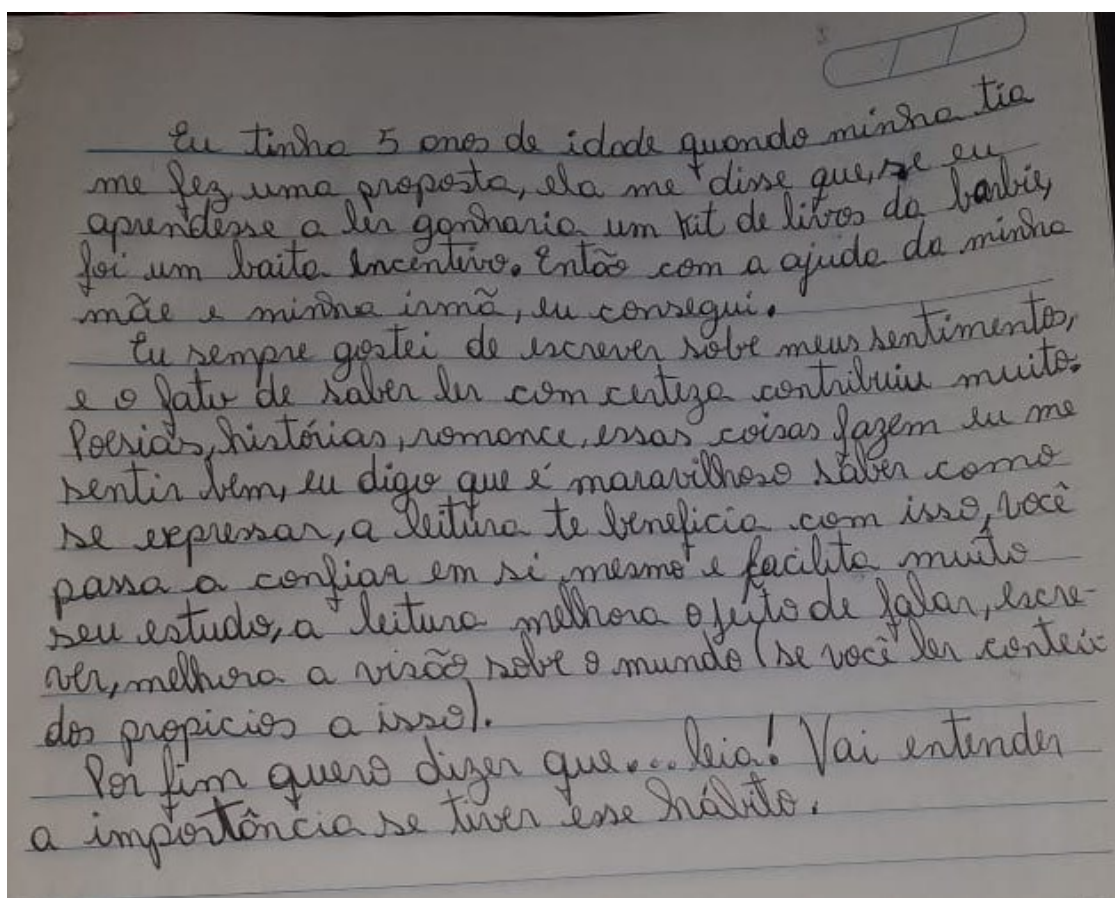 Eu tinha 5 anos de idade quando minha tia
me fez uma proposta, ela me disse que, se eu
aprendesse a ler ganharia um kit de livros da barbie,
foi um baita incentivo. Então com a ajuda da minha
mãe e minha irmã, eu consegui.
Eu sempre gostei de escrever sobre meus sentimentos,
e o fato de saber ler com certeza contribuiu muito.
Poesias, histórias, romance, essas coisas fazem eu me
sentir bem, eu digo que é maravilhoso saber como
se expressar, a leitura te beneficia com isso, você
passa a confiar em si mesmo e facilita muito
seu estudo, a leitura melhora o jeito de falar, escre-
ver, melhora a visão sobre o mundo (se você ler conteú-
dos propicios a isso).
Por fim quero dizer que... leia! Vai entender
a importância se tiver esse hábito.